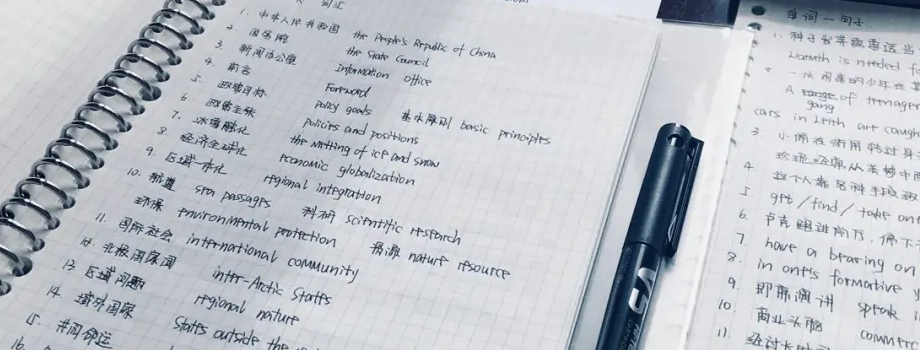 词汇
1. 中华人民共和国 the People's Republic of China
2. 国务院 the State Council
3. 新闻办公室 Information Office
4. 前言 Foreword
5. 政策目标 policy goals 基本原则 basic principles
6. 政策主张 policies and positions
7. 冰雪融化 the melting of ice and snow
8. 经济全球化 economic globalization
9. 区域一体化 regional integration
10. 航道 sea passages 科研 scientific research
环保 environmental protection 资源 nature resource
11. 国际社会 international community
12. 北极国家间 inter-Arctic States
13. 区域问题 regional nature
14. 域外国家 States outside the
15. 共同命运
16.
V5
单词一句子
1. 种子发芽需要适当
Warmth is needed fo
A gang of teenage
cars in Leith are caugh
3.
4. 这个人靠各种手段
5. get / find / take ont
6.
7. have a bearing on
8. in one's formative y
9. 即席演讲 speak i
10. 商业头脑 commerc
11. 经过长时间